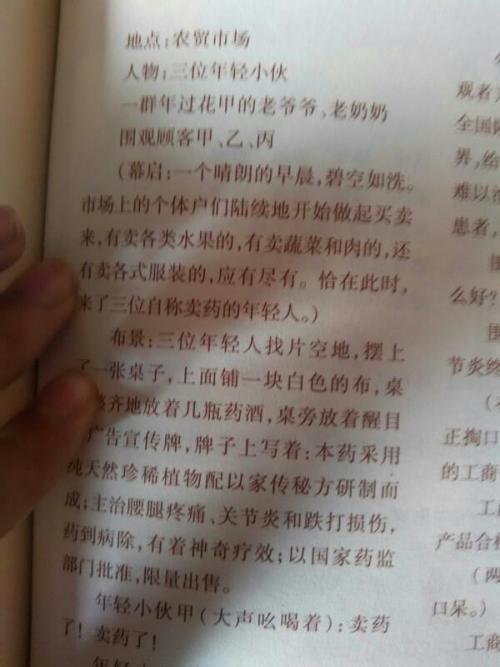 地点:农贸市场
人物:三位年轻小伙
一群年过花甲的老爷爷、老奶奶
围观顾客甲、乙、丙
(幕启:一个晴朗的早晨,碧空如洗。
市场上的个体户们陆续地开始做起买卖
来,有卖各类水果的,有卖蔬菜和肉的,还
有卖各式服装的,应有尽有。恰在此时,
来了三位自称卖药的年轻人。)
布景:三位年轻人找片空地,摆上
了一张桌子,上面铺一块白色的布,桌
整齐地放着几瓶药酒,桌旁放着醒目
广告宣传牌,牌子上写着:本药采用
纯天然珍稀植物配以家传秘方研制而
成;主治腰腿疼痛、关节炎和跌打损伤,
药到病除,有着神奇疗效;以国家药监
部门批准,限量出售。
年轻小伙甲(大声吆喝着):卖药
了!卖药了!
观者
全国
界,给
难以
患者,
么好?
节炎终
正掏口
的工商
工商
产品合格
(两
口呆。)
工商